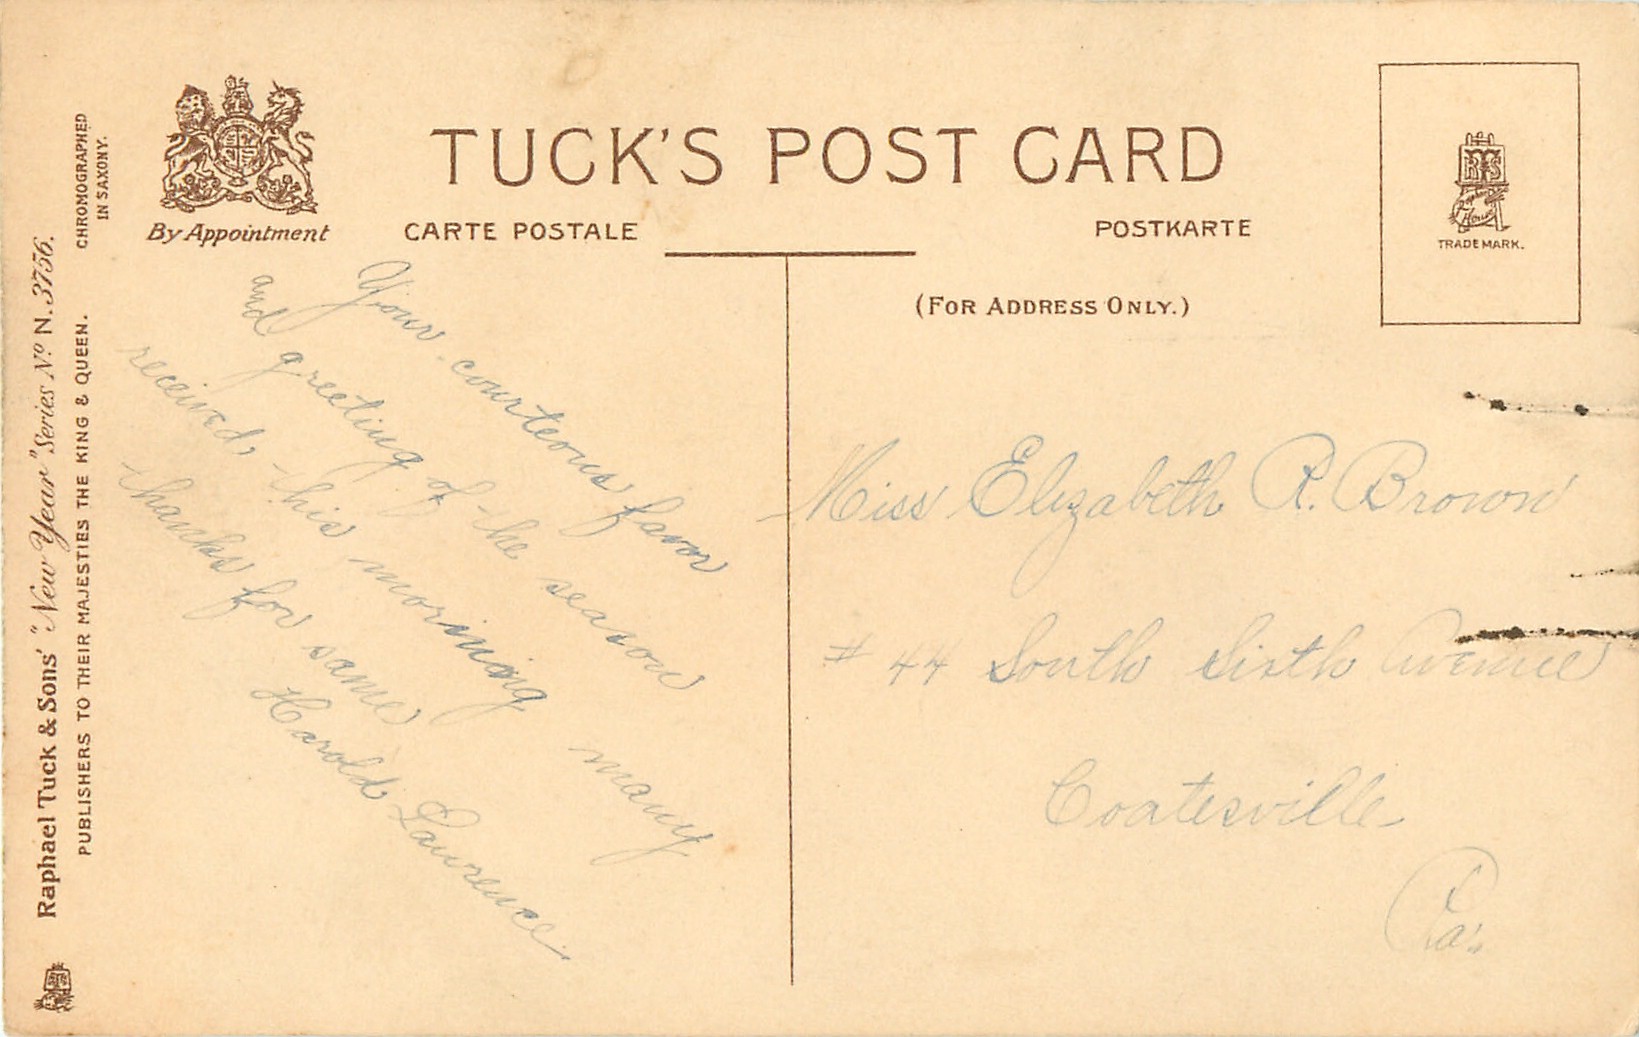 TUCK'S POST CARD
By Appointment
CARTE POSTALE
POSTKARTE
(FOR ADDRESS ONLY.)
TRADE MARK.
CHROMOGRAPHED
IN SAXONY.
Raphael Tuck & Sons' "New Year" Series No N. 3756.
PUBLISHERS TO THEIR MAJESTIES THE KING & QUEEN.
Your courteous favor
and greeting of the season
received, this morning many
thanks for same
Harold Lawrence.
Miss Elizabeth R. Brown
# 44 South Sixth Avenue
Coatesville
Pa.